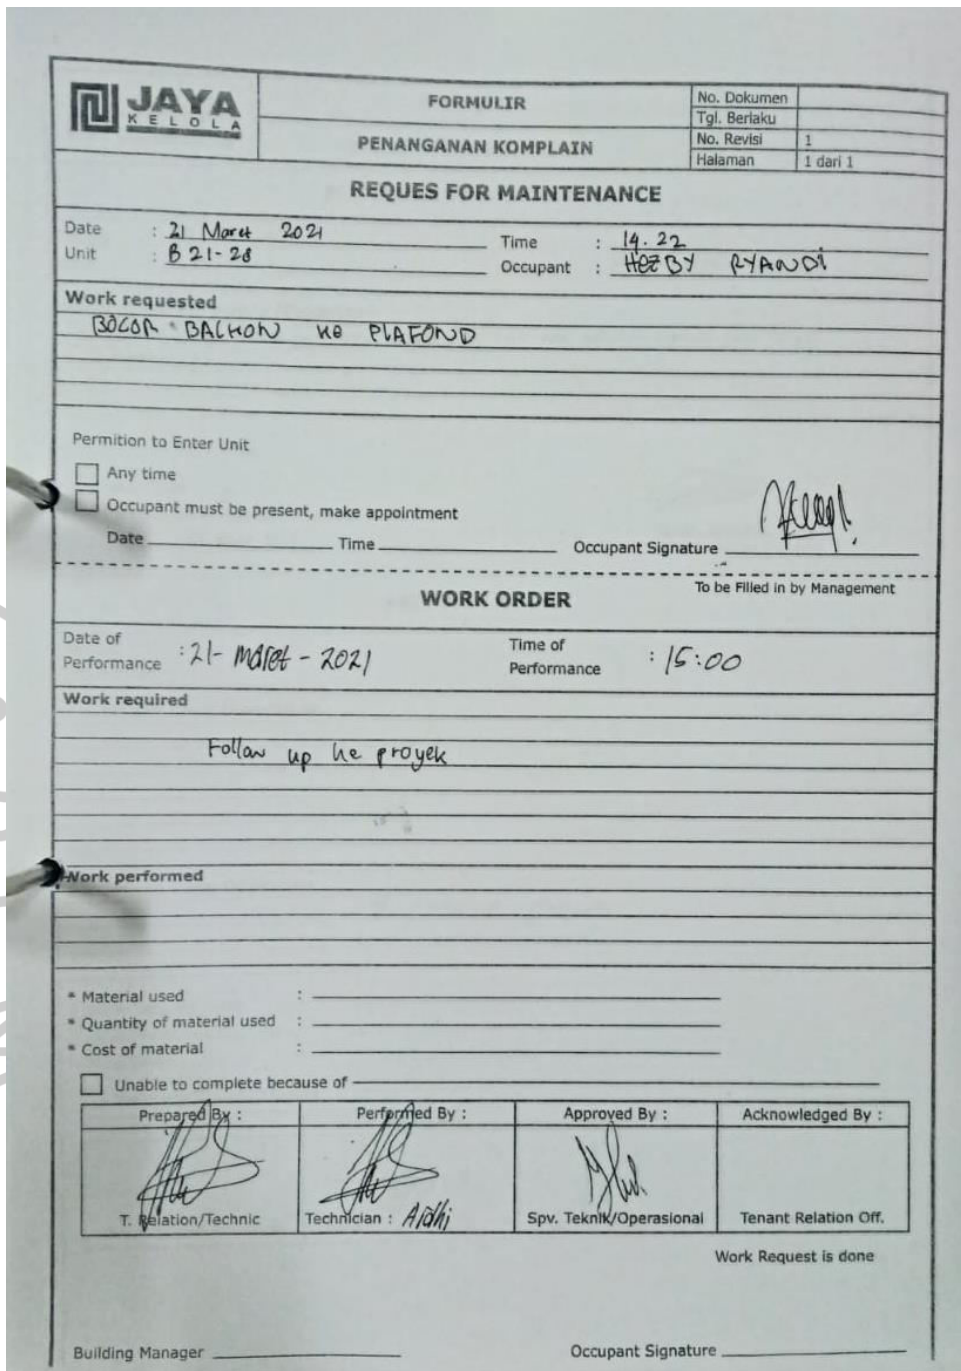 JAYA
KELOLA
FORMULIR
PENANGANAN KOMPLAIN
No. Dokumen
Tgl. Berlaku
No. Revisi 1
Halaman 1 dari 1
REQUES FOR MAINTENANCE
Date : 21 Maret 2021
Unit : B 21-28
Time : 14.22
Occupant : HEZBY RYANDI
Work requested
BOCOR BALKON KE PLAFOND
Permition to Enter Unit
Any time
Occupant must be present, make appointment
Date Time Occupant Signature
To be Filled in by Management
WORK ORDER
Date of Performance : 21 - Maret - 2021
Time of Performance : 15:00
Work required
Follow up ke proyek
Work performed
* Material used :
* Quantity of material used :
* Cost of material :
Unable to complete because of
Prepared By : Performed By : Approved By : Acknowledged By :
T. Relation/Technic Technician : Ardhi Spv. Teknik/Operasional Tenant Relation Off.
Work Request is done
Building Manager Occupant Signature